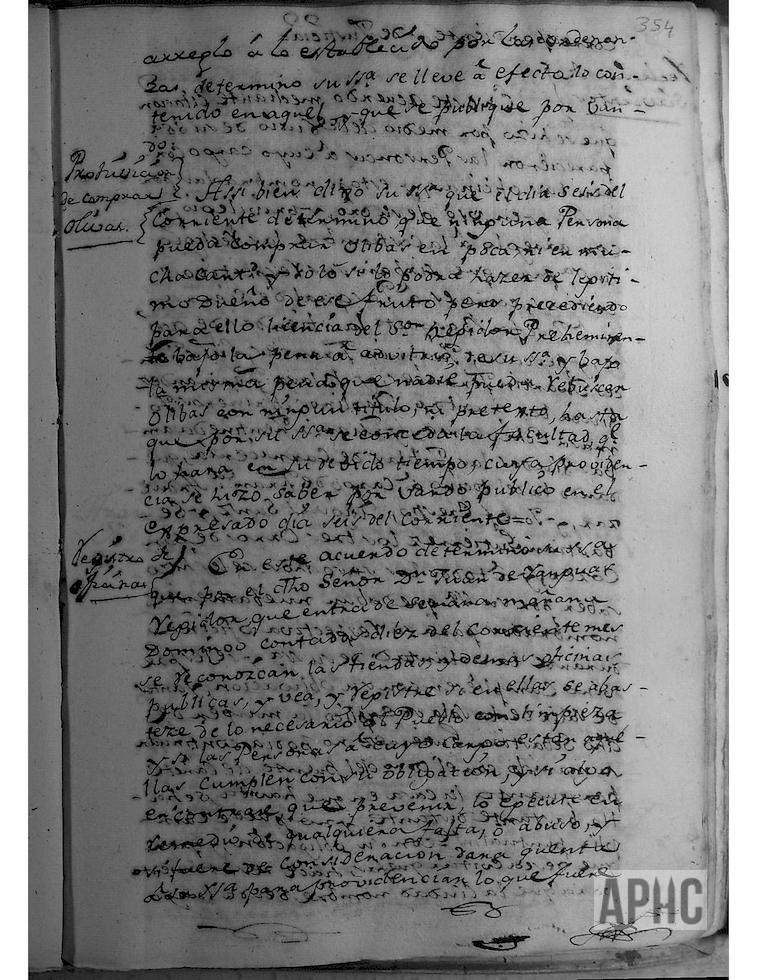 354
arreglo á lo establecido por las ordenan-
zas, determino su ssª se lleve á efecto lo con-
tenido en aquel y que se publique por van-
do:
Proívicion
de comprar
olivas.
Assi bien dixo su ssª que el dia seis del
Corriente determino que ninguna Persona
pueda comprar olibas en poca, ni en mu-
cha cantd. y solo si lo podra hazer de lexiti-
mo Dueño de ese fruto pero precediendo
para ello licencia del Sor. Rexidor Preheminen-
te bajo la pena á advitrio de su ssª y bajo
la misma pena que nadie pueda Rebuscar
olibas con ningun titulo, ni pretexto, hasta
que por su ssª se conceda la facultad, ql.
lo hara en su devido tiempo, cuya providen-
cia se hizo saber por vando publico en el
expresado dia seis del corriente =
Registro de
oficinas
En este acuerdo determino su ssª
que por el dho Señor Dn. Juan de
Rexidor, que entra de semana mañana
Domingo contado diez del Corriente mes
se Reconozcan las tiendas y demas oficinas
publicas, y vea, y Registre si en ellas se abas-
teze de lo necesario al Pueblo con limpieza
y si las Personas á cuyo cargo estan aque-
llas cumplen con su obligacion, y si algo
encontrare que prevenir, lo execute en
remedio de qualquiera falta, ó abuso, y
si fuere de consideracion dara quenta
á su ssª para providenciar lo que fuere
APHC